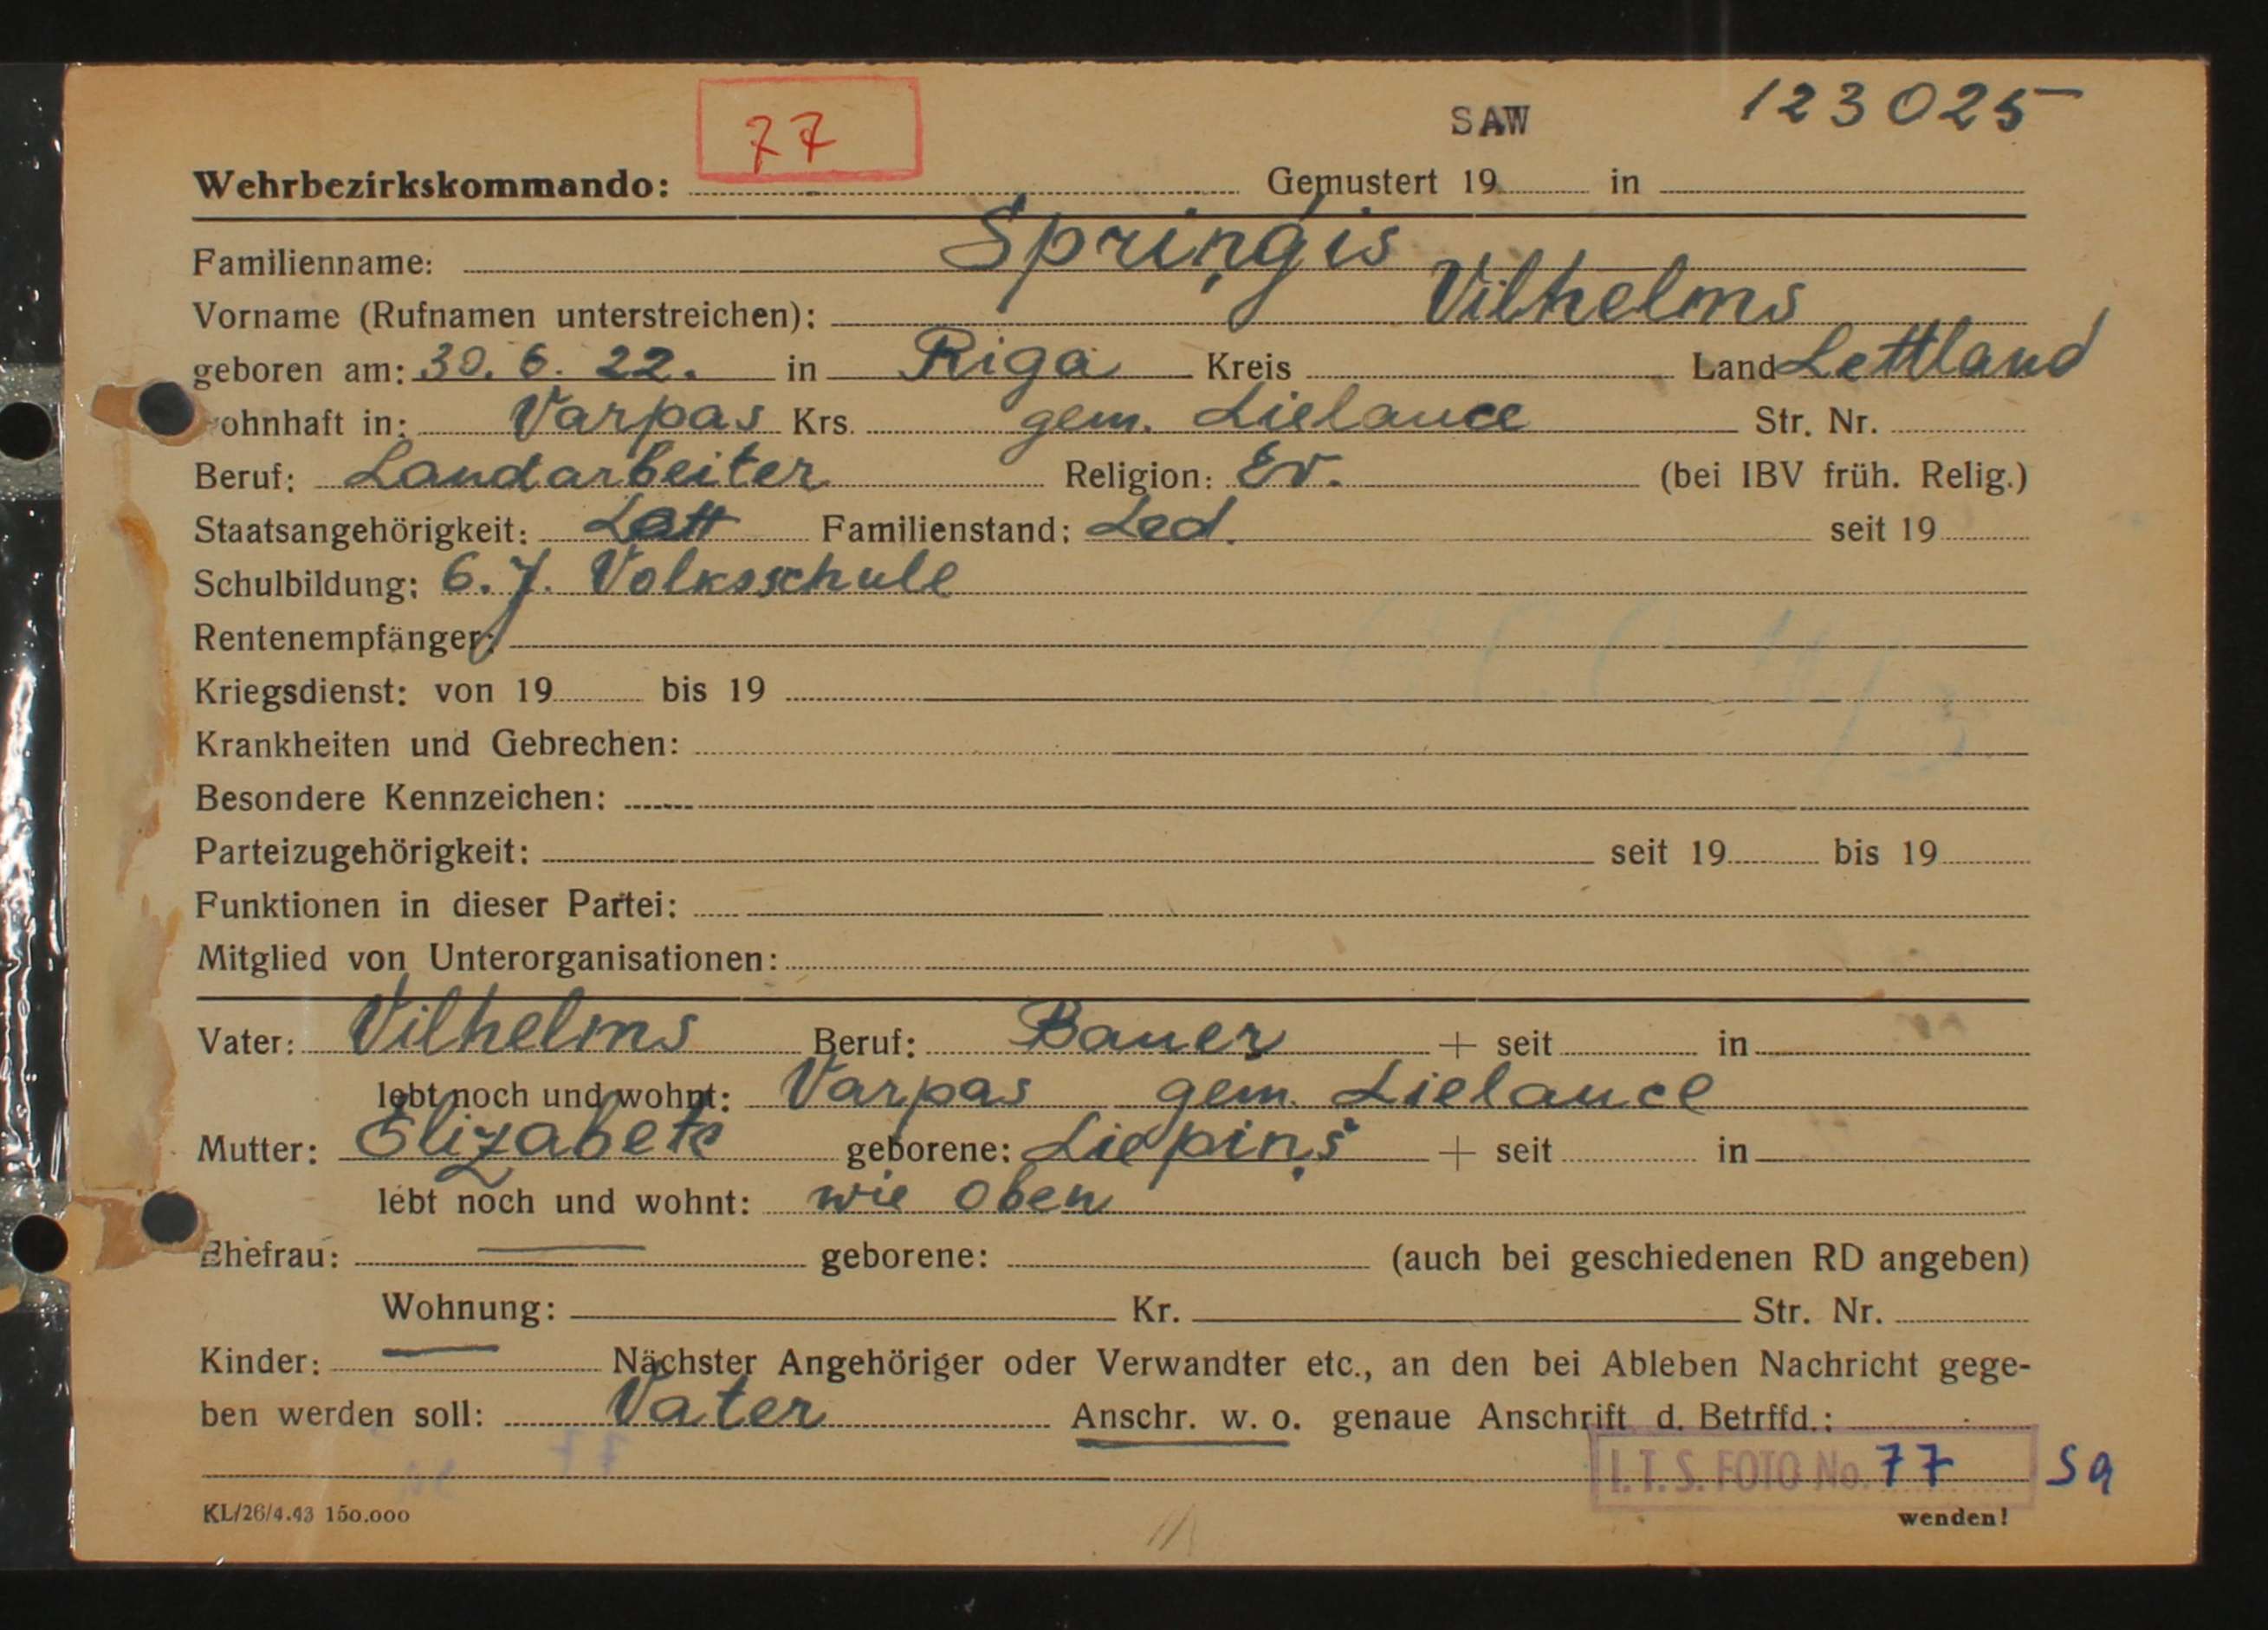 77
SAW 123025
Wehrbezirkskommando: Gemustert 19 in
Familienname: Spriņģis
Vorname (Rufnamen unterstreichen): Vilhelms
geboren am: 30. 6. 22. in Riga Kreis Land Lettland
wohnhaft in: Varpas Krs. gem. Lielauce Str. Nr.
Beruf: Landarbeiter Religion: Ev. (bei IBV früh. Relig.)
Staatsangehörigkeit: Lett Familienstand: Led. seit 19
Schulbildung: 6. J. Volksschule
Rentenempfänger:
Kriegsdienst: von 19 bis 19
Krankheiten und Gebrechen:
Besondere Kennzeichen:
Parteizugehörigkeit: seit 19 bis 19
Funktionen in dieser Partei:
Mitglied von Unterorganisationen:
Vater: Vilhelms Beruf: Bauer + seit in
lebt noch und wohnt: Varpas gem. Lielauce
Mutter: Elizabete geborene: Liepiņš + seit in
lebt noch und wohnt: wie oben
Ehefrau: — geborene: (auch bei geschiedenen RD angeben)
Wohnung: Kr. Str. Nr.
Kinder: — Nächster Angehöriger oder Verwandter etc., an den bei Ableben Nachricht gege-
ben werden soll: Vater Anschr. w. o. genaue Anschrift d. Betrffd.:
I.T.S. FOTO No. 77 Sq
KL/26/4.43 150.000 wenden!